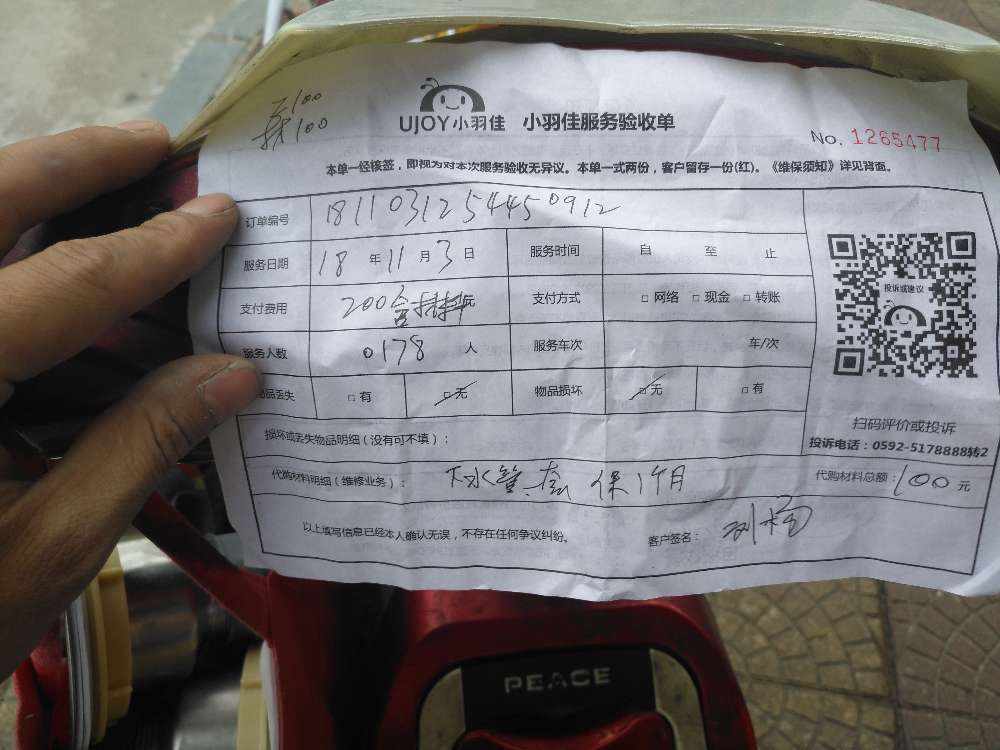 100
100
UJOY小羽佳 小羽佳服务验收单
No. 1265477
本单一经核签，即视为对本次服务验收无异议。本单一式两份，客户留存一份(红)。《维保须知》详见背面。
订单编号 1811031254450912
服务日期 18 年 11 月 3 日 服务时间 自 至 止
投诉或建议
支付费用 200含材料元 支付方式 □ 网络 □ 现金 □ 转账
服务人数 0178 人 服务车次 车/次
品丢失 □ 有 □ 无 物品损坏 □ 无 □ 有
扫码评价或投诉
损坏或丢失物品明细（没有可不填）：
投诉电话：0592-5178888转2
代购材料明细（维修业务）： 下水管一套 保1个月 代购材料总额：100 元
以上填写信息已经本人确认无误，不存在任何争议纠纷。 客户签名： 刘杨
PEACE